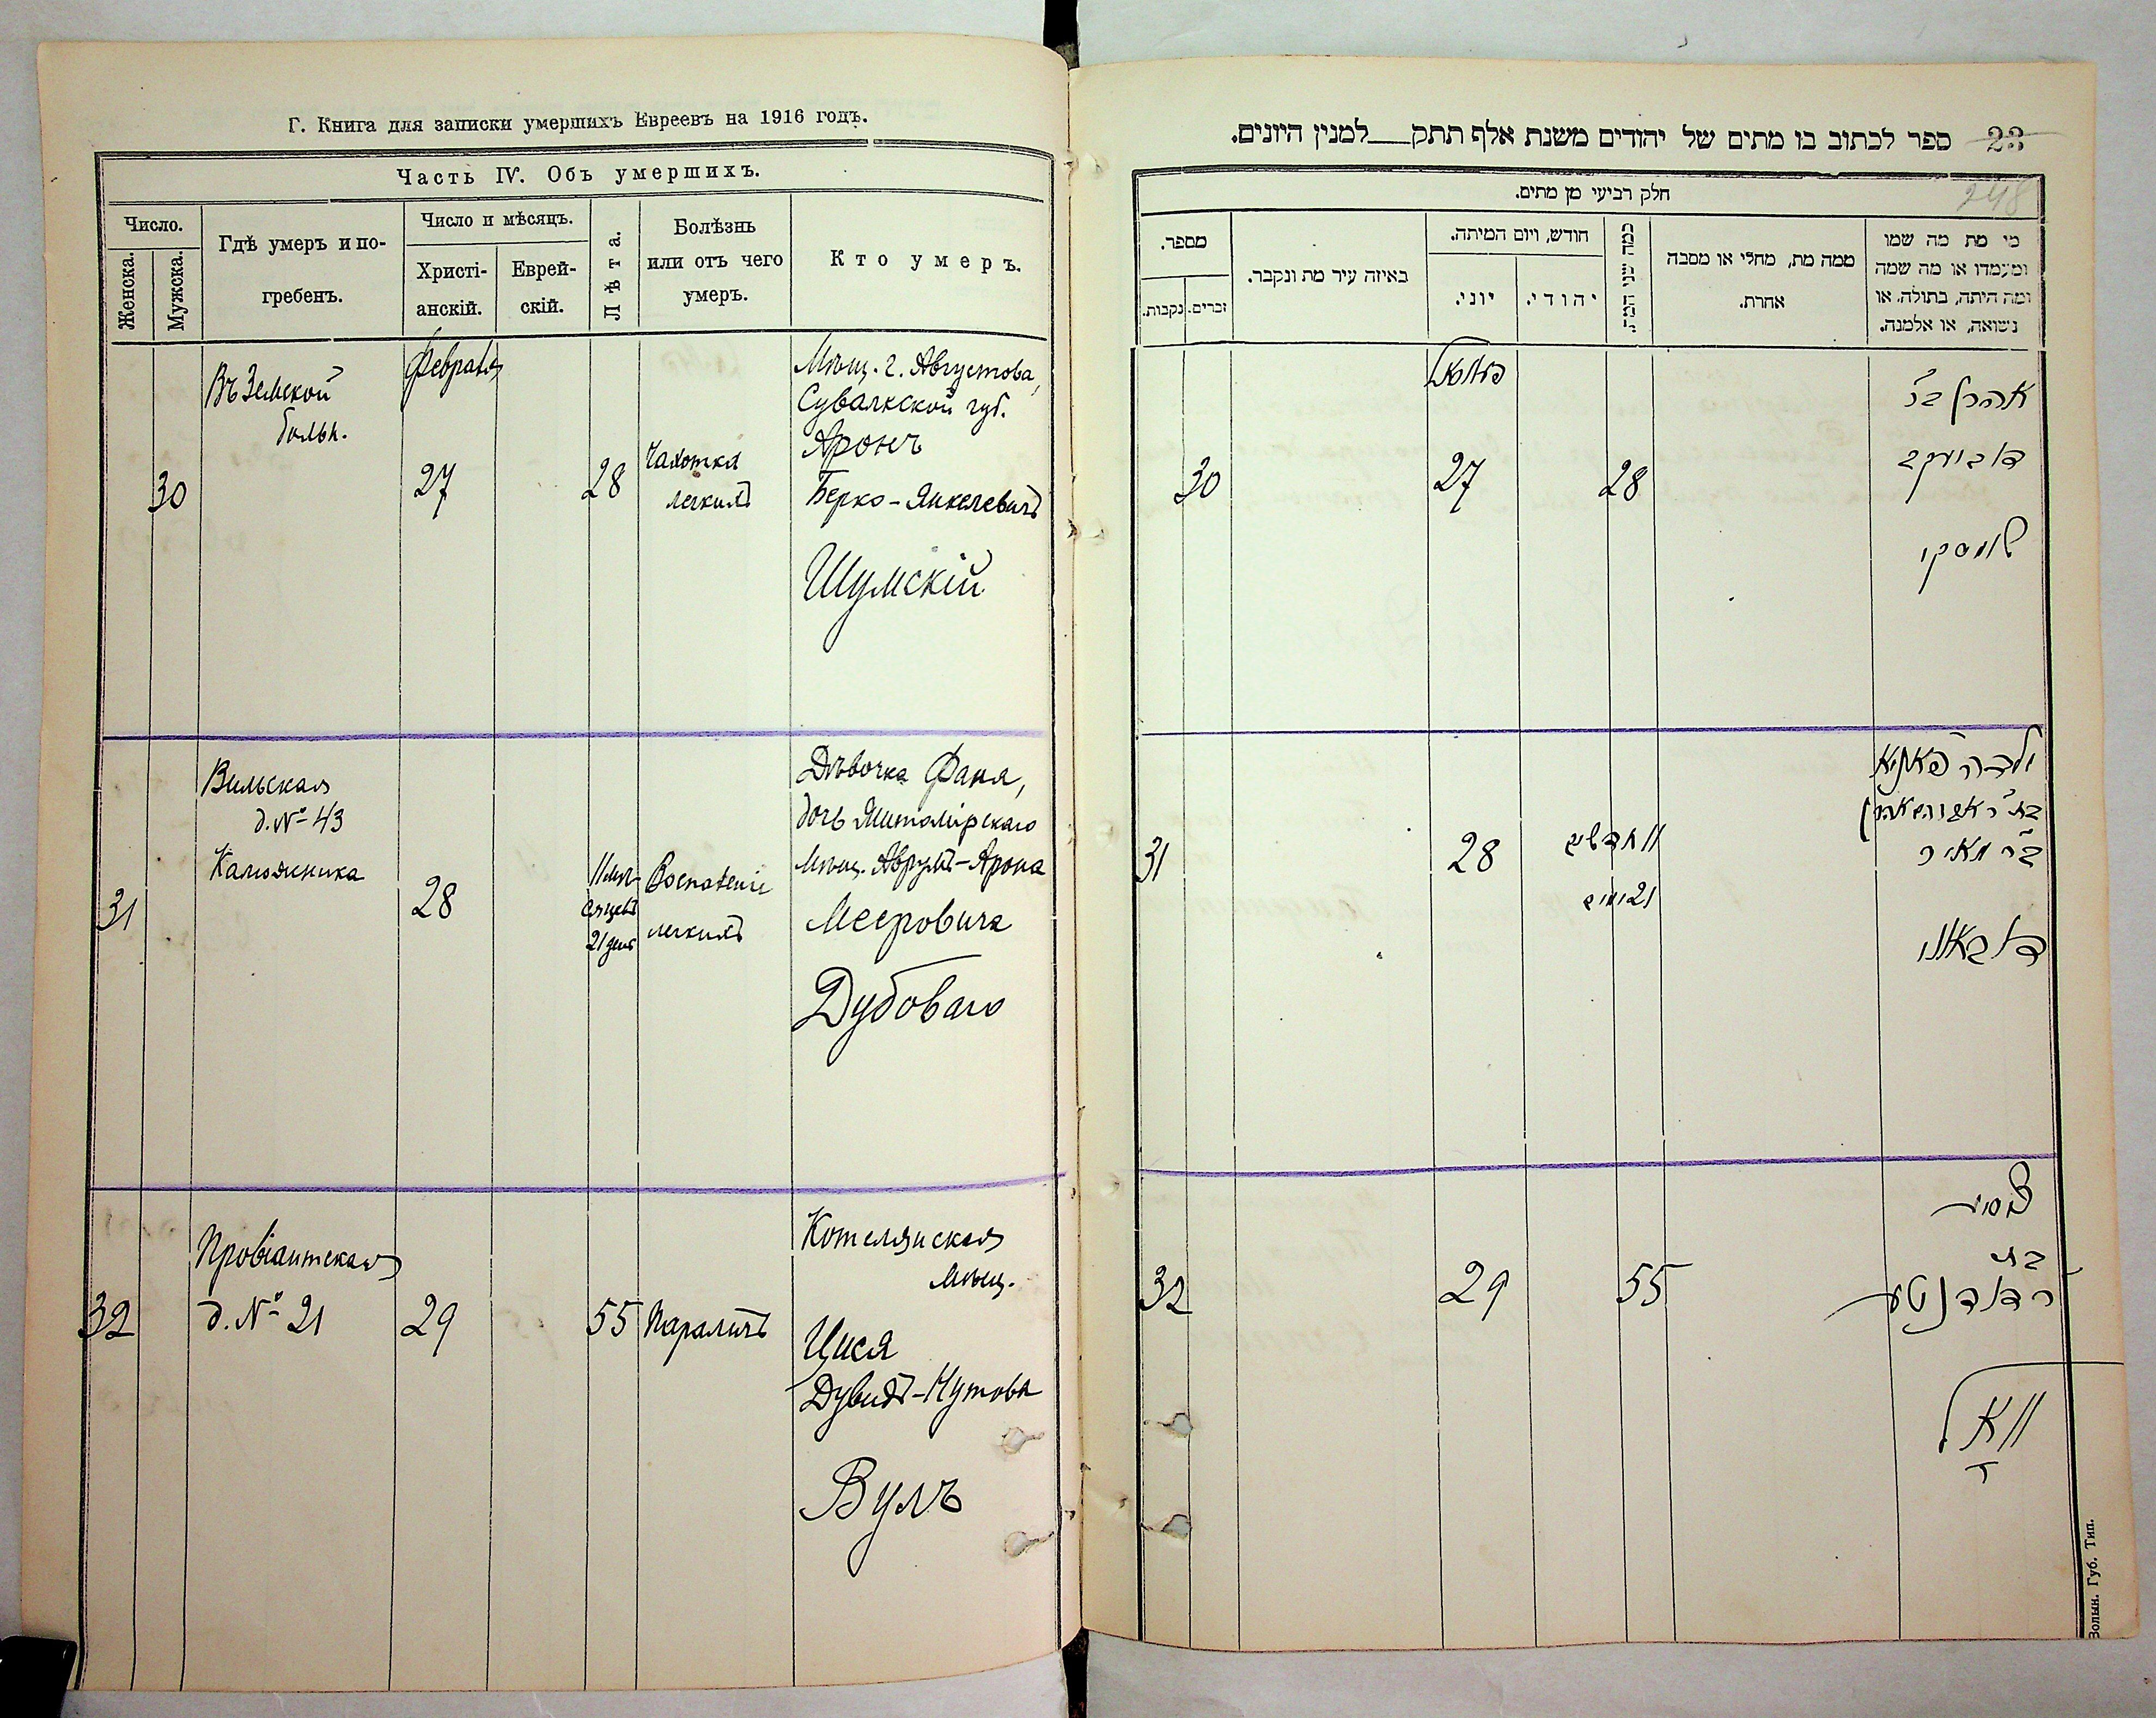 Г. Книга для записки умершихъ Евреевъ на 1916 годъ.
Часть IV. Объ умершихъ.
Число.
Женска.
Мужска.
Гдѣ умеръ и по-
гребенъ.
Число и мѣсяцъ.
Христі-
анскій.
Еврей-
скій.
Лѣта.
Болѣзнь
или отъ чего
умеръ.
Кто умеръ.
30
Въ Земской
больн.
Февраля
27
28
Чахотка
легкихъ
Мѣщ. г. Августова,
Сувалкской губ.
Аронъ
Берко-Янкелевичъ
Шумскій
31
Вильская
д. № 43
Калюжника
28
11 мѣ-
сяцевъ
21 дня
Воспаленіе
легкихъ
Дѣвочка Фаня,
дочь Житомірскаго
Мѣщ. Аврумъ-Арона
Меeровича
Дубоваго
32
Провіантская
д. № 21
29
55
Параличъ
Котелянская
мѣщ.
Цися
Дувидъ-Нутова
Вулъ
23 ספר לכתוב בו מתים של יהודים משנת אלף תתק למנין היונים.
248
חלק רביעי מן מתים.
מספר.
נקבות.
זכרים.
באיזה עיר מת ונקבר.
חודש, ויום המיתה.
יוני.
יהודי.
כמה שני המת
ממה מת, מחלי או מסבה
אחרת.
מי מת מה שמו
ומעמדו או מה שמה
ומה היתה, בתולה, או
נשואה, או אלמנה.
30
27
28
אהרן בר
שומסקי
31
28
11 חדשים
21 ימים
ילדה פאניא
בר מאיר
דובאווי
32
29
55
בת
וואל
Волын. Губ. Тип.